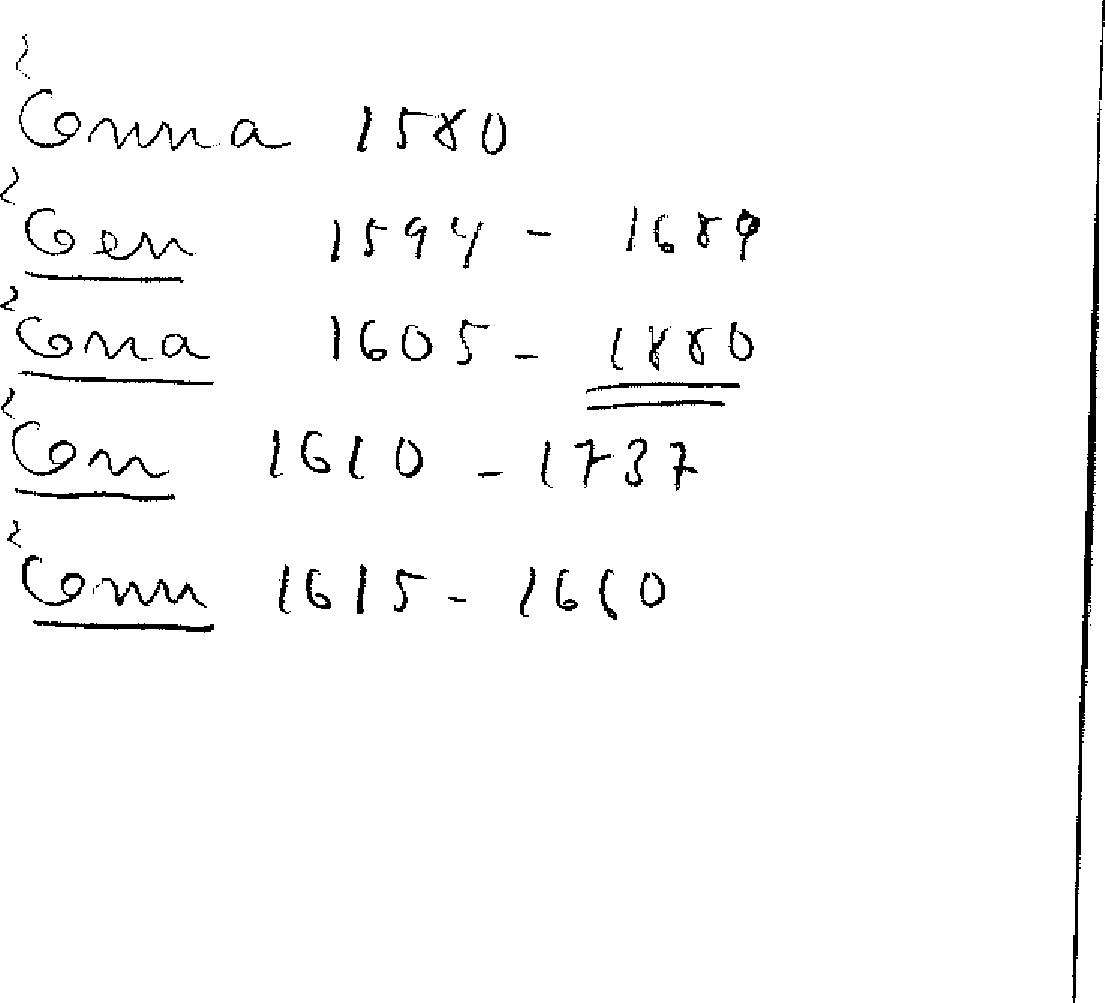 ²Gonna 1580
²Gen 1594 - 1689
²Gona 1605 - 1880
²Gon 1610 - 1737
²Gonn 1615 - 1660